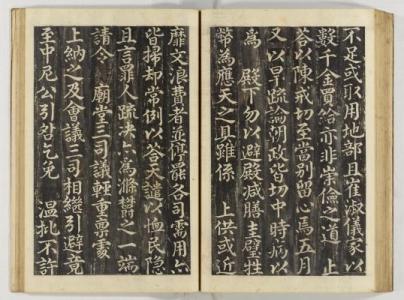 不足或取用地部且崔淑儀家以
數千金買給亦非崇儉之道 上
答以陳戒切至當別留心焉五月
又以旱疏論朝政皆切中時病以
爲 殿下勿以避殿减膳圭璧牲
幣爲應天之具雖係 上供或近
靡文浪費者並停罷各司需用亦
皆掃却常例以答天譴以恤民隐
且言罪人疏决亦爲滌欝之一端
請令 廟堂三司議輕重稟處
上納之及會議三司相繼引避竟
至中尼公引咎乞免 温批不許